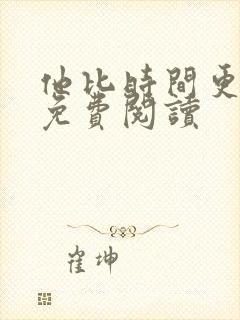 他比時間更
免費閱讀
崔坤